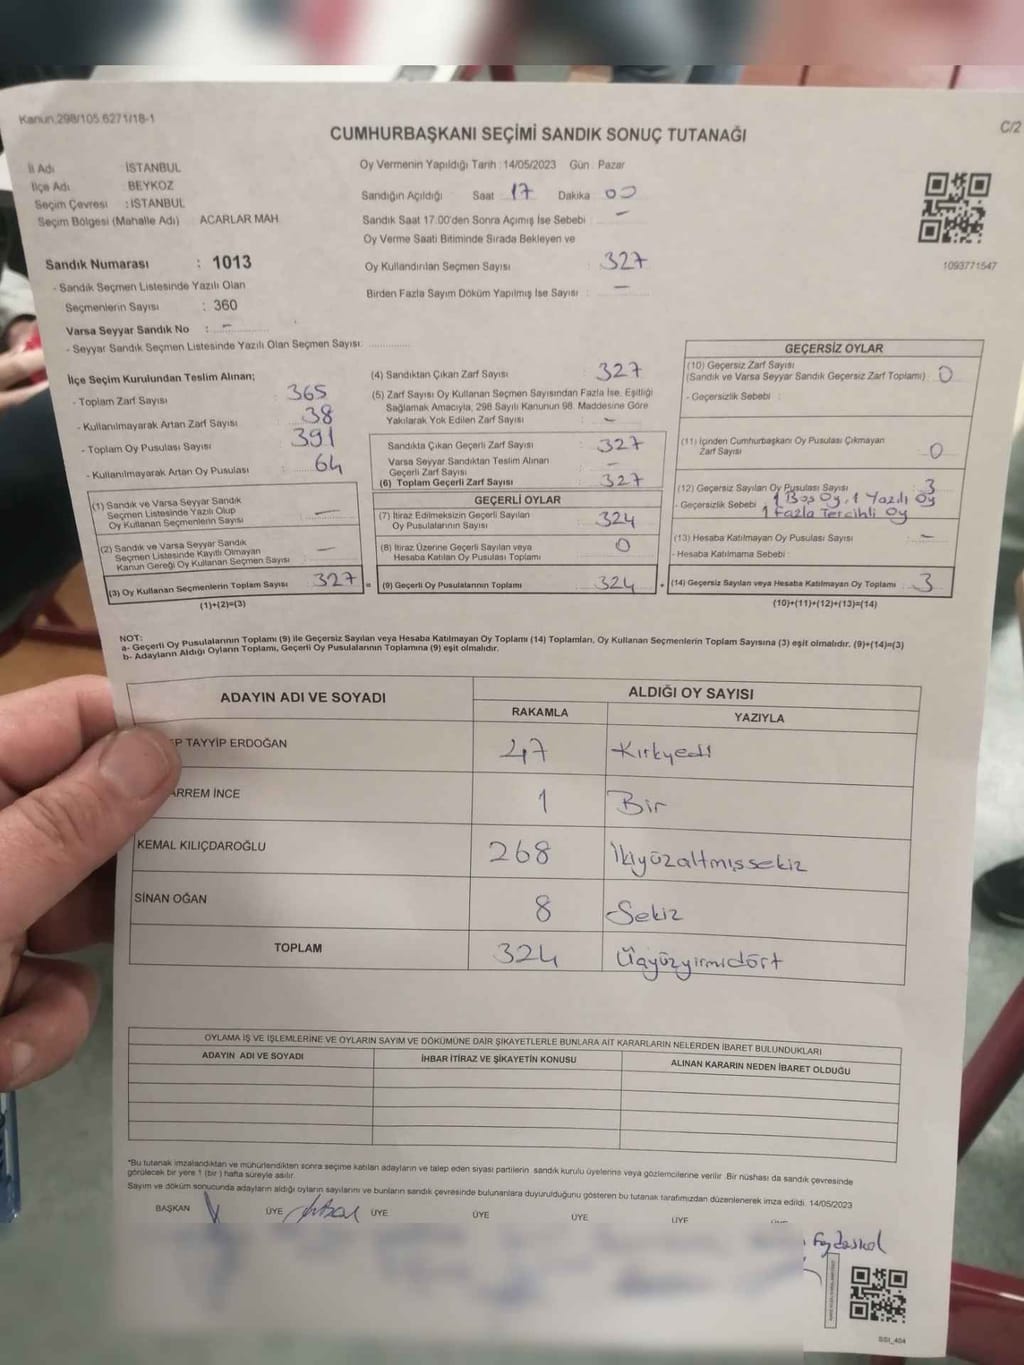 Kanun,298/105.6271/18-1
C/2
CUMHURBAŞKANI SEÇİMİ SANDIK SONUÇ TUTANAĞI
İl Adı : İSTANBUL
İlçe Adı : BEYKOZ
Seçim Çevresi : İSTANBUL
Seçim Bölgesi (Mahalle Adı) ACARLAR MAH
Sandık Numarası : 1013
- Sandık Seçmen Listesinde Yazılı Olan
Seçmenlerin Sayısı : 360
Varsa Seyyar Sandık No : -
- Seyyar Sandık Seçmen Listesinde Yazılı Olan Seçmen Sayısı
Oy Vermenin Yapıldığı Tarih : 14/05/2023 Gün : Pazar
Sandığın Açıldığı Saat 17 Dakika 00
Sandık Saat 17.00'den Sonra Açımış İse Sebebi -
Oy Verme Saati Bitiminde Sırada Bekleyen ve
Oy Kullandırılan Seçmen Sayısı : 327
Birden Fazla Sayım Döküm Yapılmış İse Sayısı : -
1093771547
İlçe Seçim Kurulundan Teslim Alınan;
- Toplam Zarf Sayısı 365
- Kullanılmayarak Artan Zarf Sayısı 38
- Toplam Oy Pusulası Sayısı 391
- Kullanılmayarak Artan Oy Pusulası 64
(1) Sandık ve Varsa Seyyar Sandık
Seçmen Listesinde Yazılı Olup
Oy Kullanan Seçmenlerin Sayısı -
(2) Sandık ve Varsa Seyyar Sandık
Seçmen Listesinde Kayıtlı Olmayan
Kanun Gereği Oy Kullanan Seçmen Sayısı -
(3) Oy Kullanan Seçmenlerin Toplam Sayısı 327 =
(1)+(2)=(3)
(4) Sandıktan Çıkan Zarf Sayısı : 327
(5) Zarf Sayısı Oy Kullanan Seçmen Sayısından Fazla İse, Eşitliği
Sağlamak Amacıyla, 298 Sayılı Kanunun 98. Maddesine Göre
Yakılarak Yok Edilen Zarf Sayısı : -
Sandıkta Çıkan Geçerli Zarf Sayısı : 327
Varsa Seyyar Sandıktan Teslim Alınan
Geçerli Zarf Sayısı -
(6) Toplam Geçerli Zarf Sayısı : 327
GEÇERLİ OYLAR
(7) İtiraz Edilmeksizin Geçerli Sayılan
Oy Pusulalarının Sayısı : 324
(8) İtiraz Üzerine Geçerli Sayılan veya
Hesaba Katılan Oy Pusulası Toplamı : 0
(9) Geçerli Oy Pusulalarının Toplamı : 324 +
GEÇERSİZ OYLAR
(10) Geçersiz Zarf Sayısı
(Sandık ve Varsa Seyyar Sandık Geçersiz Zarf Toplamı) : 0
- Geçersizlik Sebebi :
(11) İçinden Cumhurbaşkanı Oy Pusulası Çıkmayan
Zarf Sayısı : 0
(12) Geçersiz Sayılan Oy Pusulası Sayısı : 3
- Geçersizlik Sebebi 1 Boş Oy, 1 Yazılı Oy
1 Fazla Tercihli Oy
(13) Hesaba Katılmayan Oy Pusulası Sayısı : -
- Hesaba Katılmama Sebebi :
(14) Geçersiz Sayılan veya Hesaba Katılmayan Oy Toplamı : 3
(10)+(11)+(12)+(13)=(14)
NOT:
a- Geçerli Oy Pusulalarının Toplamı (9) ile Geçersiz Sayılan veya Hesaba Katılmayan Oy Toplamı (14) Toplamları, Oy Kullanan Seçmenlerin Toplam Sayısına (3) eşit olmalıdır. (9)+(14)=(3)
b- Adayların Aldığı Oyların Toplamı, Geçerli Oy Pusulalarının Toplamına (9) eşit olmalıdır.
ADAYIN ADI VE SOYADI ALDIĞI OY SAYISI
RAKAMLA YAZIYLA
P TAYYİP ERDOĞAN 47 Kırkyedi
ARREM İNCE 1 Bir
KEMAL KILIÇDAROĞLU 268 İkiyüzaltmışsekiz
SİNAN OĞAN 8 Sekiz
TOPLAM 324 Üçyüzyirmidört
OYLAMA İŞ VE İŞLEMLERİNE VE OYLARIN SAYIM VE DÖKÜMÜNE DAİR ŞİKAYETLERLE BUNLARA AİT KARARLARIN NELERDEN İBARET BULUNDUKLARI
ADAYIN ADI VE SOYADI İHBAR İTİRAZ VE ŞİKAYETİN KONUSU ALINAN KARARIN NEDEN İBARET OLDUĞU
*Bu tutanak imzalandıktan ve mühürlendikten sonra seçime katılan adayların ve talep eden siyasi partilerin sandık kurulu üyelerine veya gözlemcilerine verilir. Bir nüshası da sandık çevresinde
görülecek bir yere 1 (bir) hafta süreyle asılır.
Sayım ve döküm sonucunda adayların aldığı oyların sayılarını ve bunların sandık çevresinde bulunanlara duyurulduğunu gösteren bu tutanak tarafımızdan düzenlenerek imza edildi. 14/05/2023
BAŞKAN ÜYE ÜYE ÜYE ÜYE ÜYE
SSI_404